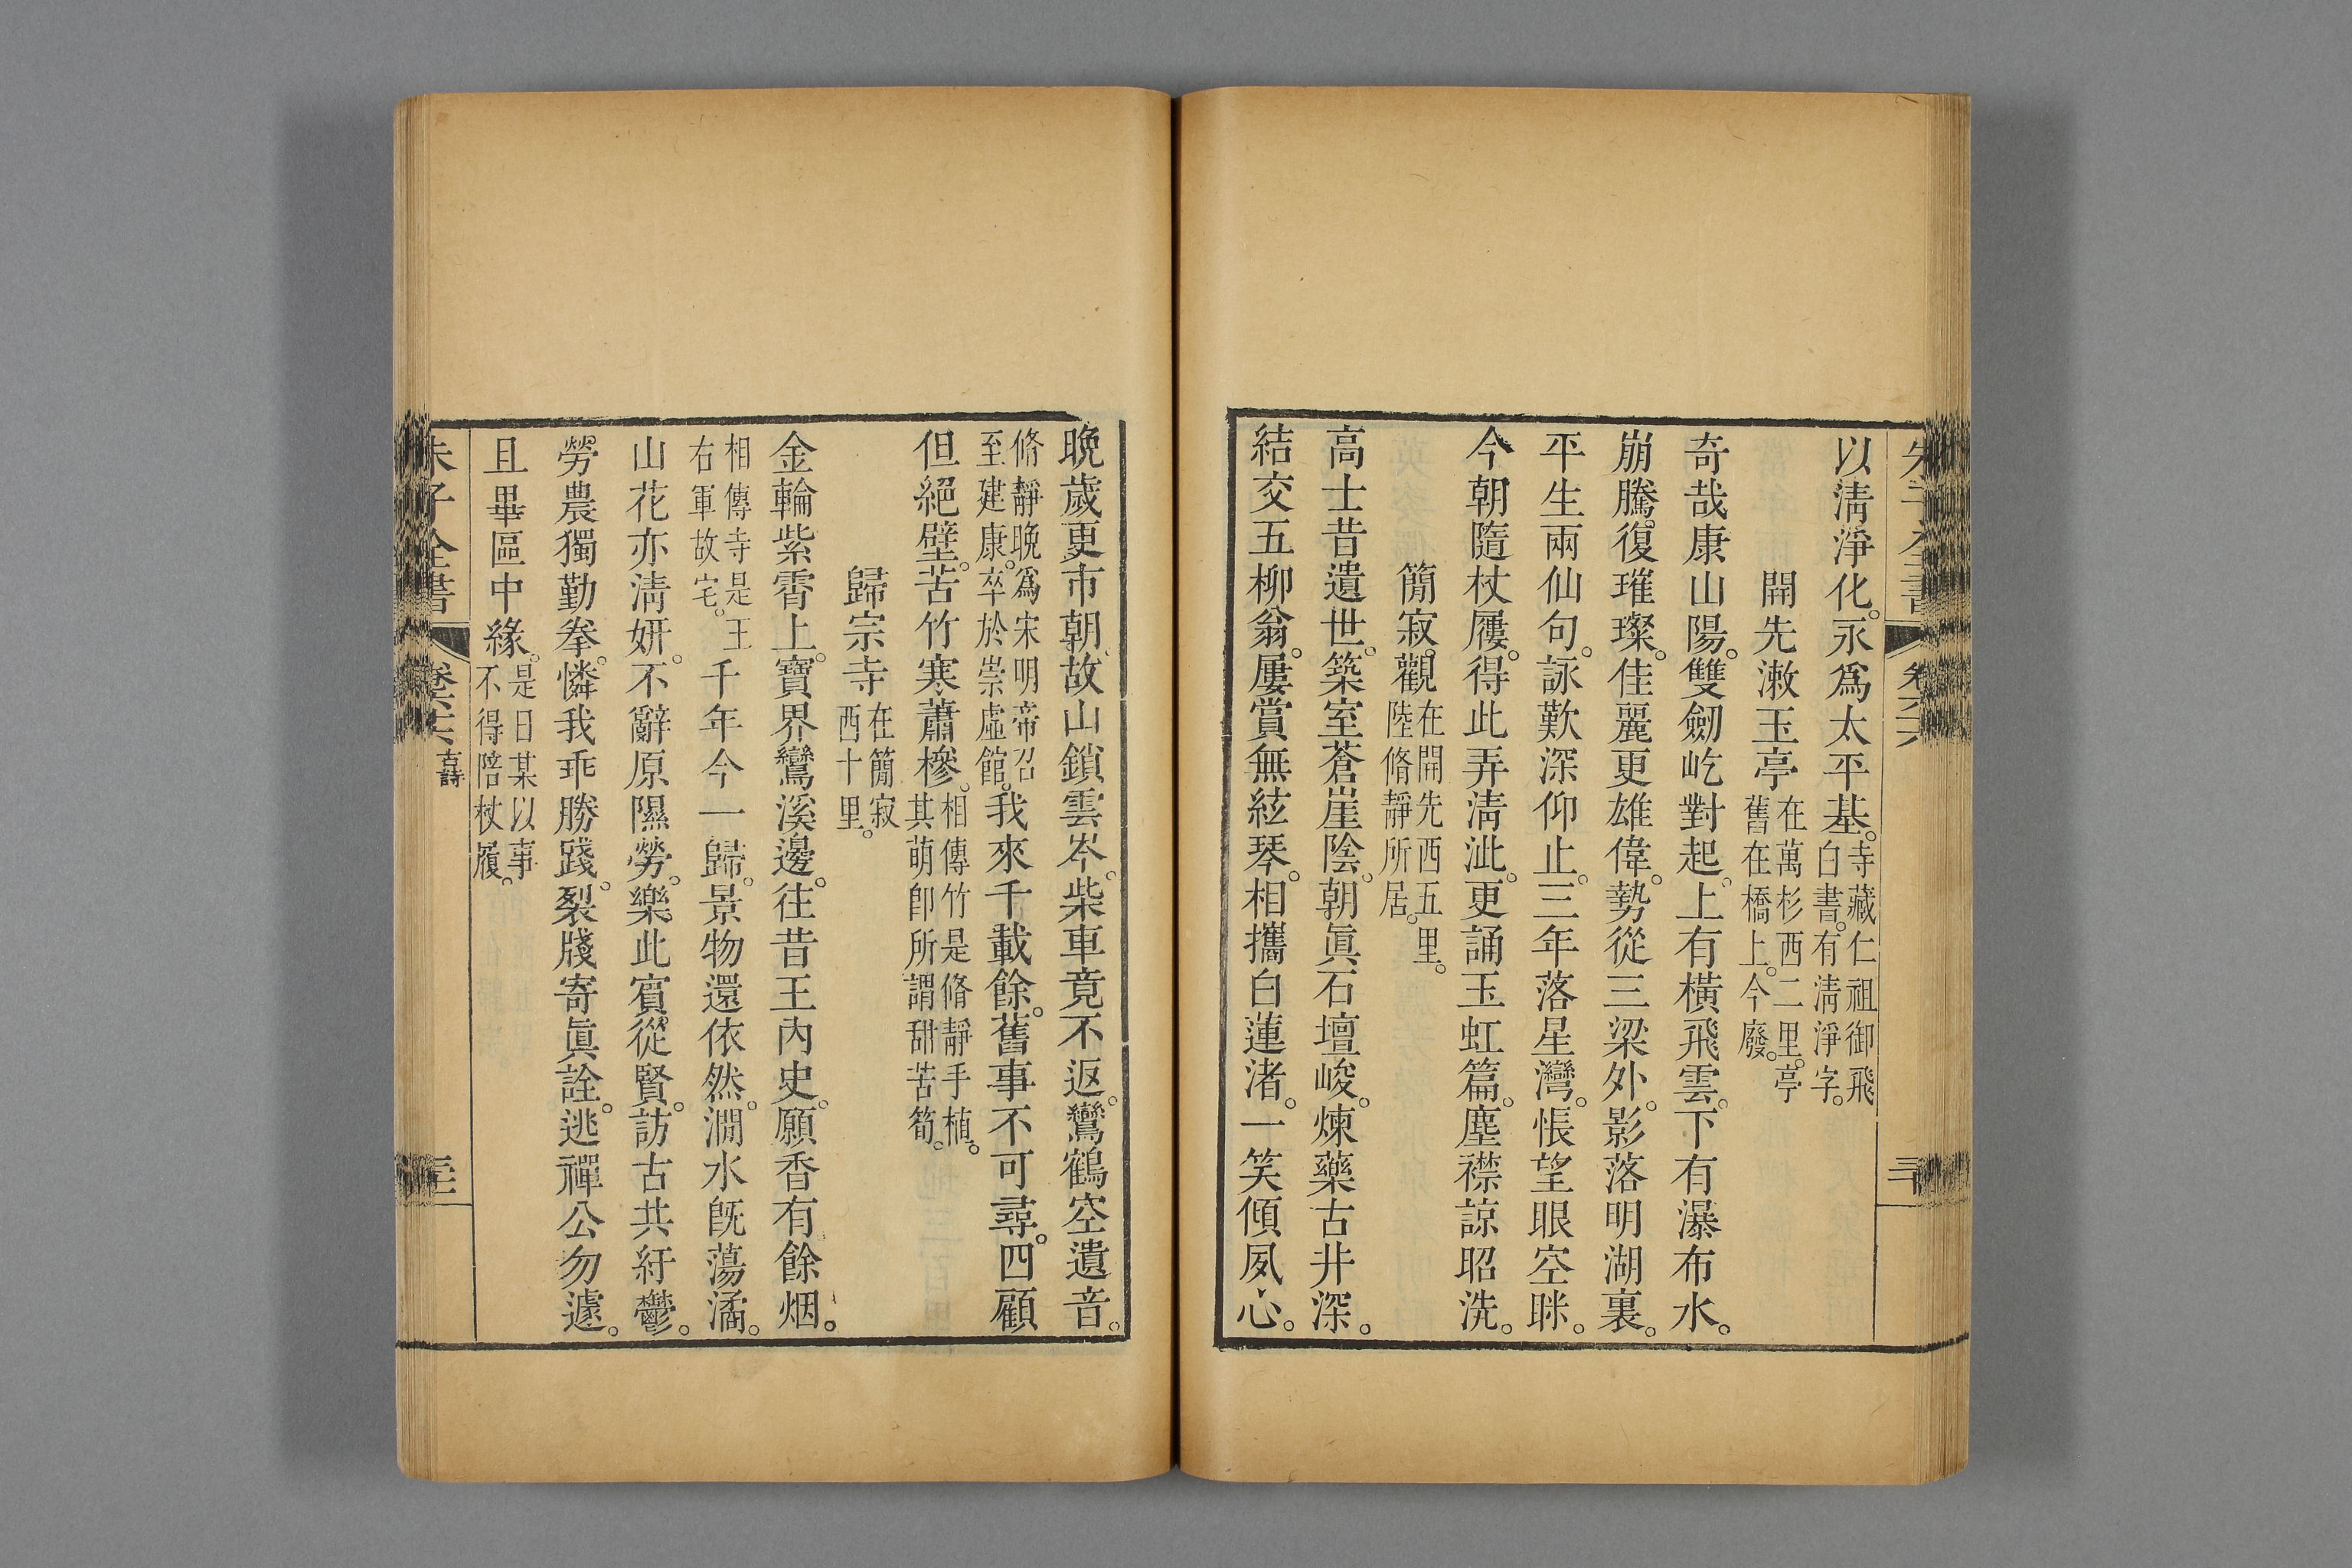 以淸淨化。永爲太平基。寺藏仁祖御飛白書。有淸淨字。
開先漱玉亭在萬杉西二里。亭舊在橋上。今廢。
奇哉康山陽。雙劒屹對起。上有橫飛雲。下有瀑布水。
崩騰復璀璨。佳麗更雄偉。勢從三梁外。影落明湖裏。
平生兩仙句。詠歎深仰止。三年落星灣。悵望眼空眯。
今朝隨杖屨。得此弄淸泚。更誦玉虹篇。塵襟諒昭洗。
簡寂觀在開先西五里。陸脩靜所居。
高士昔遺世。築室蒼崖陰。朝眞石壇峻。煉藥古井深。
結交五柳翁。屢賞無絃琴。相攜白蓮渚。一笑傾夙心。
晚歲更市朝。故山鎖雲岑。柴車竟不返。鸞鶴空遺音。
脩靜晚爲宋明帝召至建康。卒於崇虛館。我來千載餘。舊事不可尋。四顧
但絕壁。苦竹寒蕭槮。相傳竹是脩靜手植。其萌卽所謂甜苦筍。
歸宗寺在簡寂西十里。
金輪紫霄上。寶界鸞溪邊。往昔王內史。願香有餘烟。
相傳寺是王右軍故宅。千年今一歸。景物還依然。澗水既蕩潏。
山花亦淸妍。不辭原隰勞。樂此賓從賢。訪古共紆鬱。
勞農獨勤拳。憐我乖勝踐。裂牋寄眞詮。逃禪公勿遽。
且畢區中緣。是日某以事不得陪杖履。
朱子全書
卷六十六
古詩